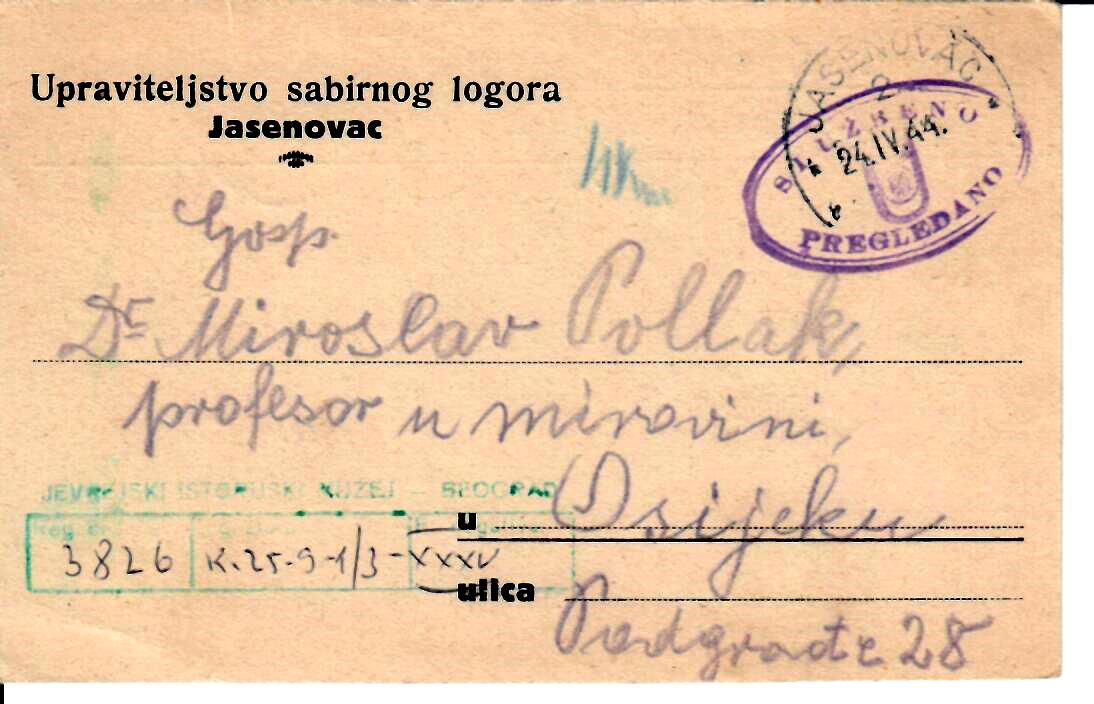 Upraviteljstvo sabirnog logora
Jasenovac
JASENOVAC
2
24.IV.44.
SLUŽBENO
U
PREGLEDANO
Gosp.
Dr Miroslav Pollak,
profesor u mirovini,
JEVREJSKI ISTORIJSKI MUZEJ – BEOGRAD
Reg. br.
u Osijeku
3826 K.25-9-1/3-XXXV
ulica Podgrađe 28